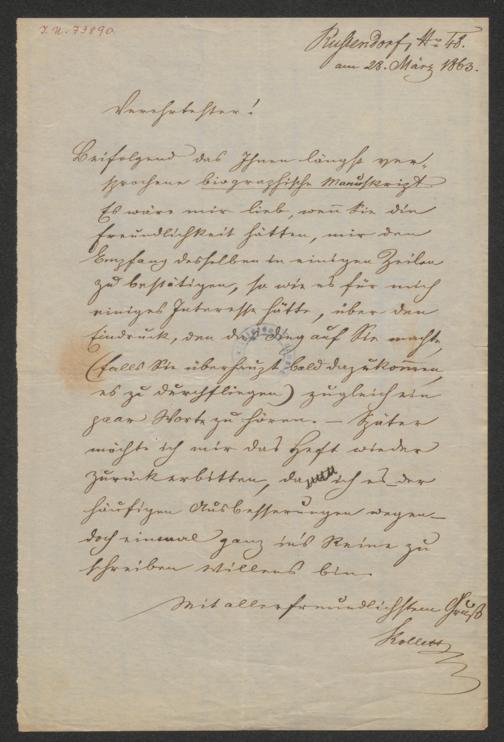 I.N. 73890.
Rustendorf, Nro 48.
am 28. März 1863.
Verehrtester!
Beifolgend das Ihnen längst ver-
sprochene biographische Manuskript.
Es wäre mir lieb, wenn Sie die
Freundlichkeit hätten, mir den
Empfang desselben in einigen Zeilen
zu bestätigen, so wie es für mich
einiges Interesse hätte, über den
Eindruck, den das Ding auf Sie machte,
(falls Sie überhaupt bald dazukommen,
es zu durchfliegen) zugleich ein
paar Worte zu hören. — Später
möchte ich mir das Heft wieder
zurück erbitten, da ich es der
häufigen Ausbesserungen wegen
doch einmal ganz in's Reine zu
schreiben Willens bin.
Mit allerfreundlichstem Gruß
Kollett